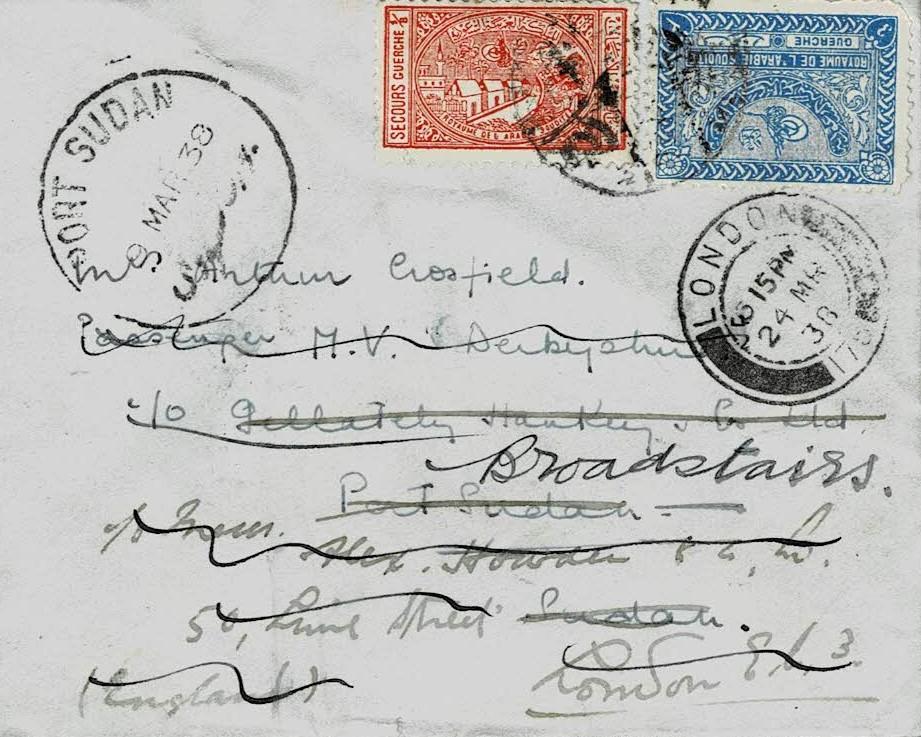 SECOURS GUERCHE 1/8
ROYAUME DE L'ARABIE
GUERCHE
ROYAUME DE L'ARABIE SOUDITE
PORT SUDAN
9 MAR 38
LONDON
6 15 PM
24 MR
38
Arthur Crosfield.
Passenger M.V. Derbyshire
c/o Gellatly Hankey & Co Ltd
Broadstairs.
Port Sudan
c/o Messrs.
Alex. Howden & Co, Ld.
Lime Street Sudan.
(England) London E.C.3.